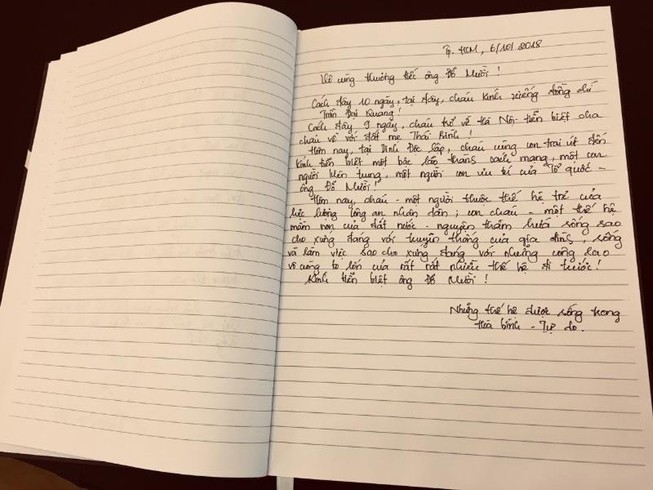 Tp. HCM, 6/10/2018
Vô cùng thương tiếc ông Đỗ Mười!
Cách đây 10 ngày, tại đây, cháu kính viếng đồng chí
Trần Đại Quang!
Cách đây 9 ngày, cháu trở về Hà Nội tiễn biệt cha
cháu về với đất mẹ Thái Bình!
Hôm nay, tại Dinh Độc lập, cháu cùng con trai út đến
kính tiễn biệt một bác lão thành cách mạng, một con
người kiên trung, một người con ưu tú của Tổ quốc -
ông Đỗ Mười!
Hôm nay, cháu - một người thuộc thế hệ trẻ của
lực lượng công an nhân dân; con cháu - một thế hệ
mầm non của đất nước - nguyện thầm hứa sống sao
cho xứng đáng với truyền thống của gia đình, sống
và làm việc sao cho xứng đáng với những công lao
vô cùng to lớn của rất rất nhiều thế hệ đi trước!
Kính tiễn biệt ông Đỗ Mười!
Những thế hệ được sống trong
hoà bình - Tự do.